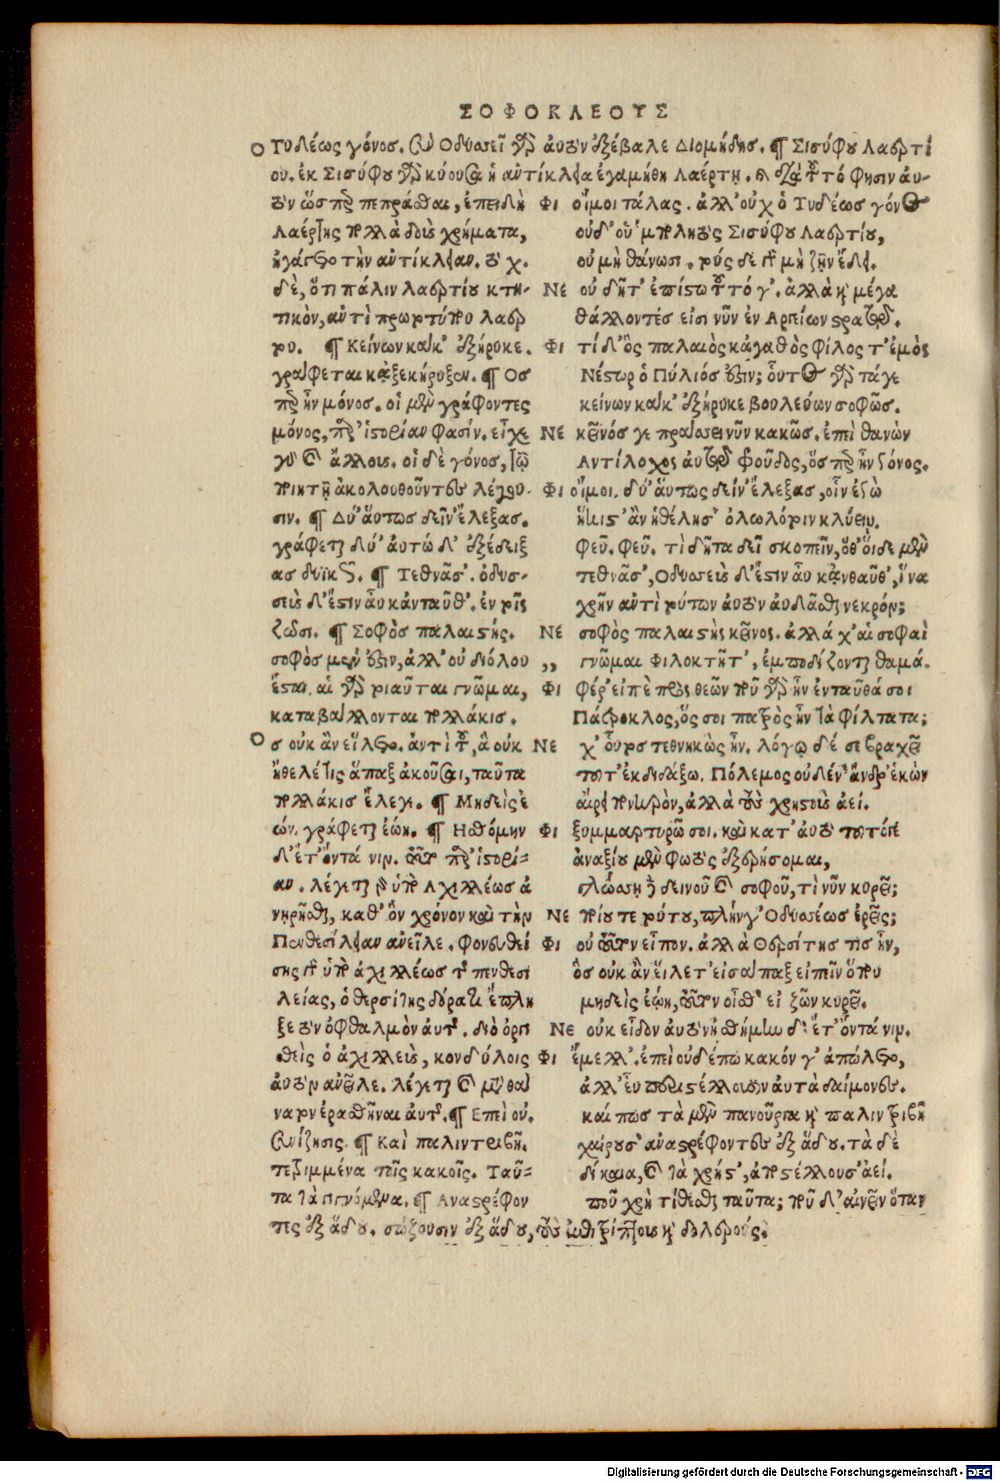 ΣΟΦΟΚΛΕΟΥΣ
Ο Τυδέως γόνοσ. σὺν Οδυσσεῖ γὰρ αὐτὸν ἐξέβαλε Διομήδησ. ¶ Σισύφου Λαερτί
ου. ἐκ Σισύφου γὰρ κύουσα ἡ αὐτίκλεια ἐγαμήθη Λαέρτῃ. διὰ τοῦτό φησιν αὐ-
τὸν ὥσπερ πεπρᾶσθαι, ἐπειδὴ
Λαέρτης πολλὰ δοὺς χρήματα,
ἠγάγετο τὴν αὐτίκλειαν. τὸ
δὲ, ὅτι πάλιν λαερτίου κτη-
τικὸν, αὐτὶ πρωτοτύπου λαερ
του. ¶ Κείνων κακ' ἐξήρυκε.
γράφεται κἀξεκήρυξεν. ¶ Οσ
περ ἦν μόνοσ. οἱ μὲν γράφοντες
μόνος, πρὸς ἱστορίαν φασίν. εἶχε
γὸ καὶ ἄλλους. οἱ δὲ γόνοσ, τῷ
ποιητῇ ἀκολουθοῦντες λέγου-
σιν. ¶ Δύ' αὕτωσ δεῖν' ἔλεξασ.
γράφεται δύ' αὐτώ δ' ἐξέδειξ
ασ δυϊκῶς. ¶ Τεθνᾶσ'. ὀδυσ-
σεὺς δ' ἔστιν αὖ κἀνταῦθ'. ἐν τοῖς
ζῶσι. ¶ Σοφὸσ παλαιστής.
σοφὸσ μέν ἐστιν, ἀλλ' οὐ διόλου
ἔσται. αἱ γὰρ τοιαῦται γνῶμαι,
καταβάλλονται πολλάκισ.
Ο σ οὐκ ἂν εἵλετο. ἀντὶ τοῦ, ἃ οὐκ
ἤθελέ τις ἅπαξ ἀκοῦσαι, ταῦτα
πολλάκισ ἔλεγε. ¶ Μηδεὶς ἐ
ών. γράφεται ἐώη. ¶ Ησθόμην
δ' ἔτ' ὄντά νιν. τοῦτο παρ' ἱστορί-
αν. λέγεται γὰρ ὑπὸ Αχιλλέωσ ἀ
νῃρῆσθαι, καθ' ὃν χρόνον καὶ τὴν
Πενθεσίλειαν ἀνεῖλε. φονευθεί
σης γὰρ ὑπὸ ἀχιλλέως τῆς πενθεσι
λείας, ὁ θερσίτης δόρατι ἔπλη
ξε τὸν ὀφθαλμὸν αὐτῆς. διὸ ὀργι
σθεὶς ὁ ἀχιλλεὺς, κονδύλοις
αὐτὸν ἀνεῖλε. λέγεται καὶ μεταθα
νατον ἐρασθῆναι αὐτῆς. ¶ Επεὶ οὐ.
συνίζησις. ¶ Καὶ παλιντριβῆ.
τετριμμένα τοῖς κακοῖς. Ταῦ-
τα τὰ γιγνόμενα. ¶ Αναστρέφον
τες ἐξ ἅδου. σώζουσιν ἐξ ἅδου, τοὺς ἐπιτρίπτους καὶ δολερούς.
Φι οἴμοι τάλας. ἀλλ' οὐχ ὁ Τυδέωσ γόνος
οὐδ' οὑ'μποληιὸς Σισύφου Λαερτίου,
οὐ μὴ θάνωσι. τούς δε γὰρ μὴ ζῆν ἔδει.
Νε οὐ δῆτ' ἐπίστω τοῦτό γ'. ἀλλὰ καὶ μέγα
θάλλοντές εἰσι νῦν ἐν Αργείων στρατῷ.
Φι τί δ' ὃς παλαιὸς κἀγαθὸς φίλος τ' ἐμὸς
Νέστωρ ὁ Πύλιός ἐστιν; οὗτος γὰρ τάγε
κείνων κακ' ἐξήρυκε βουλεύων σοφῶσ.
Νε κεῖνός γε πράσσει νῦν κακῶσ. ἐπεὶ θανὼν
Αντίλοχος αὐτῷ φροῦδος, ὅσπερ ἦν γόνος.
Φι οἴμοι. δύ' αὕτως δείν' ἔλεξασ, οἷν ἐγὼ
ἥκιστ' ἂν ἠθέλησ' ὀλωλότοιν κλύειν.
φεῦ. φεῦ. τὶ δῆτα δεῖ σκοπεῖν, ὅθ' οἵδε μὲν
τεθνᾶσ', Οδυσσεὺς δ' ἔστιν αὖ κἀνθαῦθ', ἵνα
χρῆν αὐτὶ τούτων αὐτὸν αὐδᾶσθαι νεκρόν;
Νε σοφὸς παλαιστὴς κεῖνος. ἀλλά χ' αἱ σοφαὶ
,, γνῶμαι Φιλοκτῆτ', ἐμποδίζονται θαμά.
Φι φέρ' εἰπὲ πρὸς θεῶν ποῦ γὰρ ἦν ἐνταῦθά σοι
Πάτροκλος, ὅς σοι πατρὸς ἦν τὰ φίλτατα;
Νε χ' οὗτος τεθνηκὼς ἦν. λόγῳ δέ σε βραχεῖ
τοῦτ' ἐκδιδάξω. Πόλεμος οὐδέν' ἄνδρ' ἑκὼν
αἱρεῖ πονηρὸν, ἀλλὰ τοὺς χρηστοὺς ἀεί.
Φι ξυμμαρτυρῶ σοι. καὶ κατ' αὐτὸ τοῦτό γε
ἀναξίου μὲν φωτὸς ἐξερήσομαι,
γλώσσῃ δὲ δεινοῦ καὶ σοφοῦ, τὶ νῦν κυρεῖ;
Νε ποίου τε τούτου, πλήν γ' Οδυσσέωσ ἐρεῖς;
Φι οὐ τοῦτον εἶπον. ἀλλὰ Θερσίτησ τὶσ ἦν,
ὃσ οὐκ ἂν εἵλετ' εἰσάπαξ εἰπεῖν ὅπου
μηδεὶς ἐῴη, τοῦτον οἶσθ' εἰ ζῶν κυρεῖ.
Νε οὐκ εἶδον αὐτὸν ᾐσθήμην δ' ἔτ' ὄντά νιν.
Φι ἔμελλ'. ἐπεὶ οὐδέπω κακόν γ' ἀπώλετο,
ἀλλ' εὖ περιστέλλουσιν αὐτὰ δαίμονες.
καί πως τὰ μὲν πανοῦργα καὶ παλιντριβῆ
χαίρουσ' ἀναστρέφοντες ἐξ ἅδου. τὰ δὲ
δίκαια, καὶ τὰ χρήστ', ἀποστέλλουσ' ἀεί.
ποῦ χρὴ τίθεσθαι ταῦτα; ποῦ δ' αἰνεῖν ὅταν